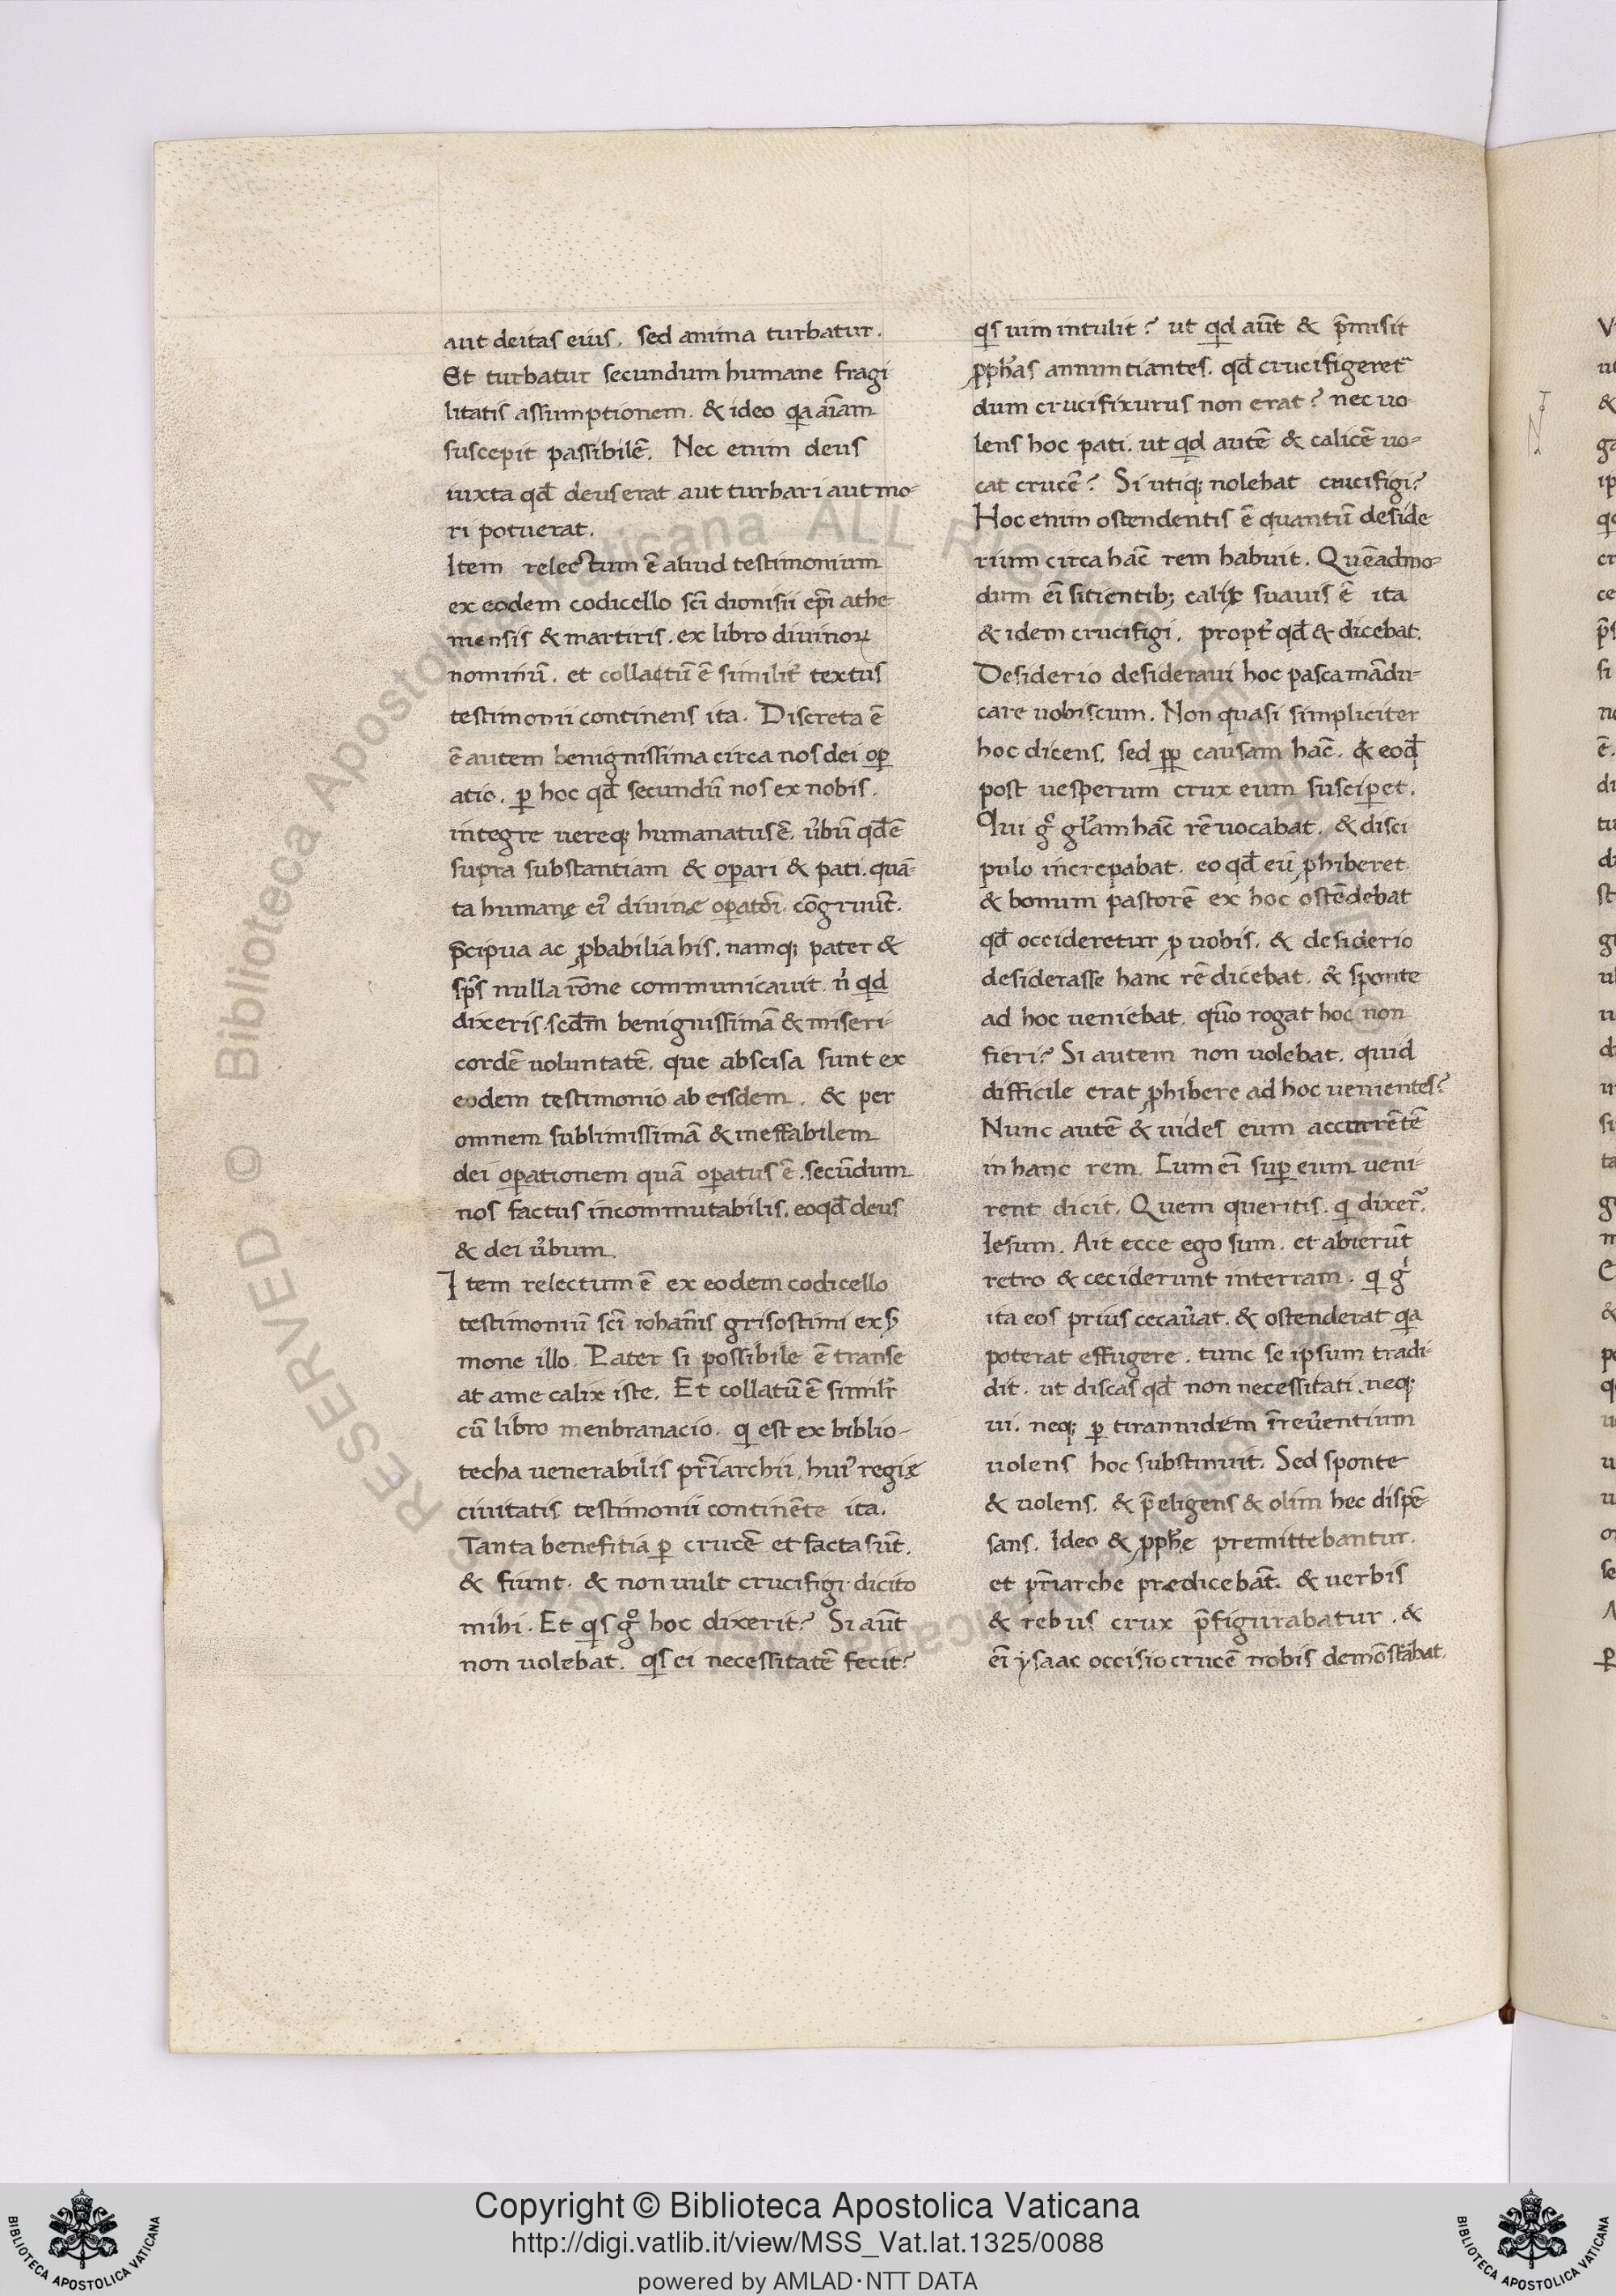 aut deitas eius. sed anima turbatur.
Et turbatur secundum humane fragi
litatis assumptionem. & ideo qa aīam
suscepit passibilē. Nec enim deus
iuxta qđ deus erat aut turbari aut mo-
ri potuerat.
Item relectum ē aliud testimonium
ex eodem codicello sc̄i dionisii ep̄i athe-
niensis & martiris. ex libro diuinoꝝ
nominū. et collactū ē similit̄ textus
testimonii continens ita. Discreta ē
ē autem benignissima circa nos dei oꝑ
atio. ꝑ hoc qđ secundū nos ex nobis.
integre uereq; humanatus ē. ūbū qđ ē
supra substantiam & oꝑari & pati. quā-
ta humanę ei᾽ diuinę oꝑatōi. cōgruūt.
p̄cipua ac ꝓbabilia his. namq; pater &
sp̄s nulla rōne communicauit. n̄ qd
dixeris. scđm benignissimā & miseri-
cordē uoluntatē. que abscisa sunt ex
eodem testimonio ab eisdem. & per
omnem sublimissimā & ineffabilem
dei oꝑationem quā oꝑatus ē. secūdum
nos factus incommutabilis. eo qđ deus
& dei ūbum.
Item relectum ē ex eodem codicello
testimoniū sc̄i iohānis grisostimi ex s̄
mone illo. Pater si possibile ē transe
at ame calix iste. Et collatū ē similr̄
cū libro menbranacio. q est ex biblio-
techa uenerabilis pr̄iarchii, hui᾽ regię
ciuitatis. testimonii continēte ita.
Tanta benefitia ꝑ crucē et facta sūt.
& fiunt. & non uult crucifigi dicito
mihi. Et qs gͦ hoc dixerit? Si aūt
non uolebat. qs ei necessitatē fecit?
qs uim intulit? ut qd aūt & p̄misit
ꝓph̄as annuntiantes. qđ crucifigeret᾽
dum crucifixurus non erat? nec uo
lens hoc pati. ut qd autē & calicē uo-
cat crucē? Si utiq; nolebat crucifigi?
Hoc enim ostendentis ē quantū deside
rium circa hāc rem habuit. Quēadmo-
dum ei̅ sitientib; calix suauis ē ita
& idem crucifigi. propt̄ qđ & dicebat.
Desiderio desideraui hoc pasca mādu-
care uobiscum. Non quasi simpliciter
hoc dicens. sed ꝑꝑ causam hāc. & eođ
post uesperum crux eum susciꝑet.
Qui gͦ gl̄am hāc rē uocabat. & disci
pulo increpabat. eo qđ eū ꝓhiberet.
& bonum pastorē ex hoc ostēdebat
qđ occideretur ꝓ uobis. & desiderio
desiderasse hanc rē dicebat. & sponte
ad hoc ueniebat. quō rogat hoc non
fieri? Si autem non uolebat. quid
difficile erat ꝓhibere ad hoc uenientes?
Nunc autē & uides eum accurrētē
in hanc rem. Cum ei̅ suꝑ eum ueni-
rent dicit. Quem queritis. q dixer̄.
Iesum. Ait ecce ego sum. et abierūt
retro & ceciderunt interram. q gͦ
ita eos prius cecaūat. & ostenderat qa
poterat effugere. tunc se ipsum tradi-
dit. ut discas qđ non necessitati. neq;
ui. neq; ꝑ tirannidem īreūentium
uolens hoc substinuit. Sed sponte
& uolens. & p̄eligens & olim hec dispē-
sans. Ideo & ꝓph̄e premittebantur.
et pr̄iarche prędicebāt. & uerbis
& rebus crux p̄figurabatur. &
ei̅ ysaac occisio crucē nobis demōstrabat.
Copyright © Biblioteca Apostolica Vaticana
http://digi.vatlib.it/view/MSS_Vat.lat.1325/0088
powered by AMLAD·NTT DATA